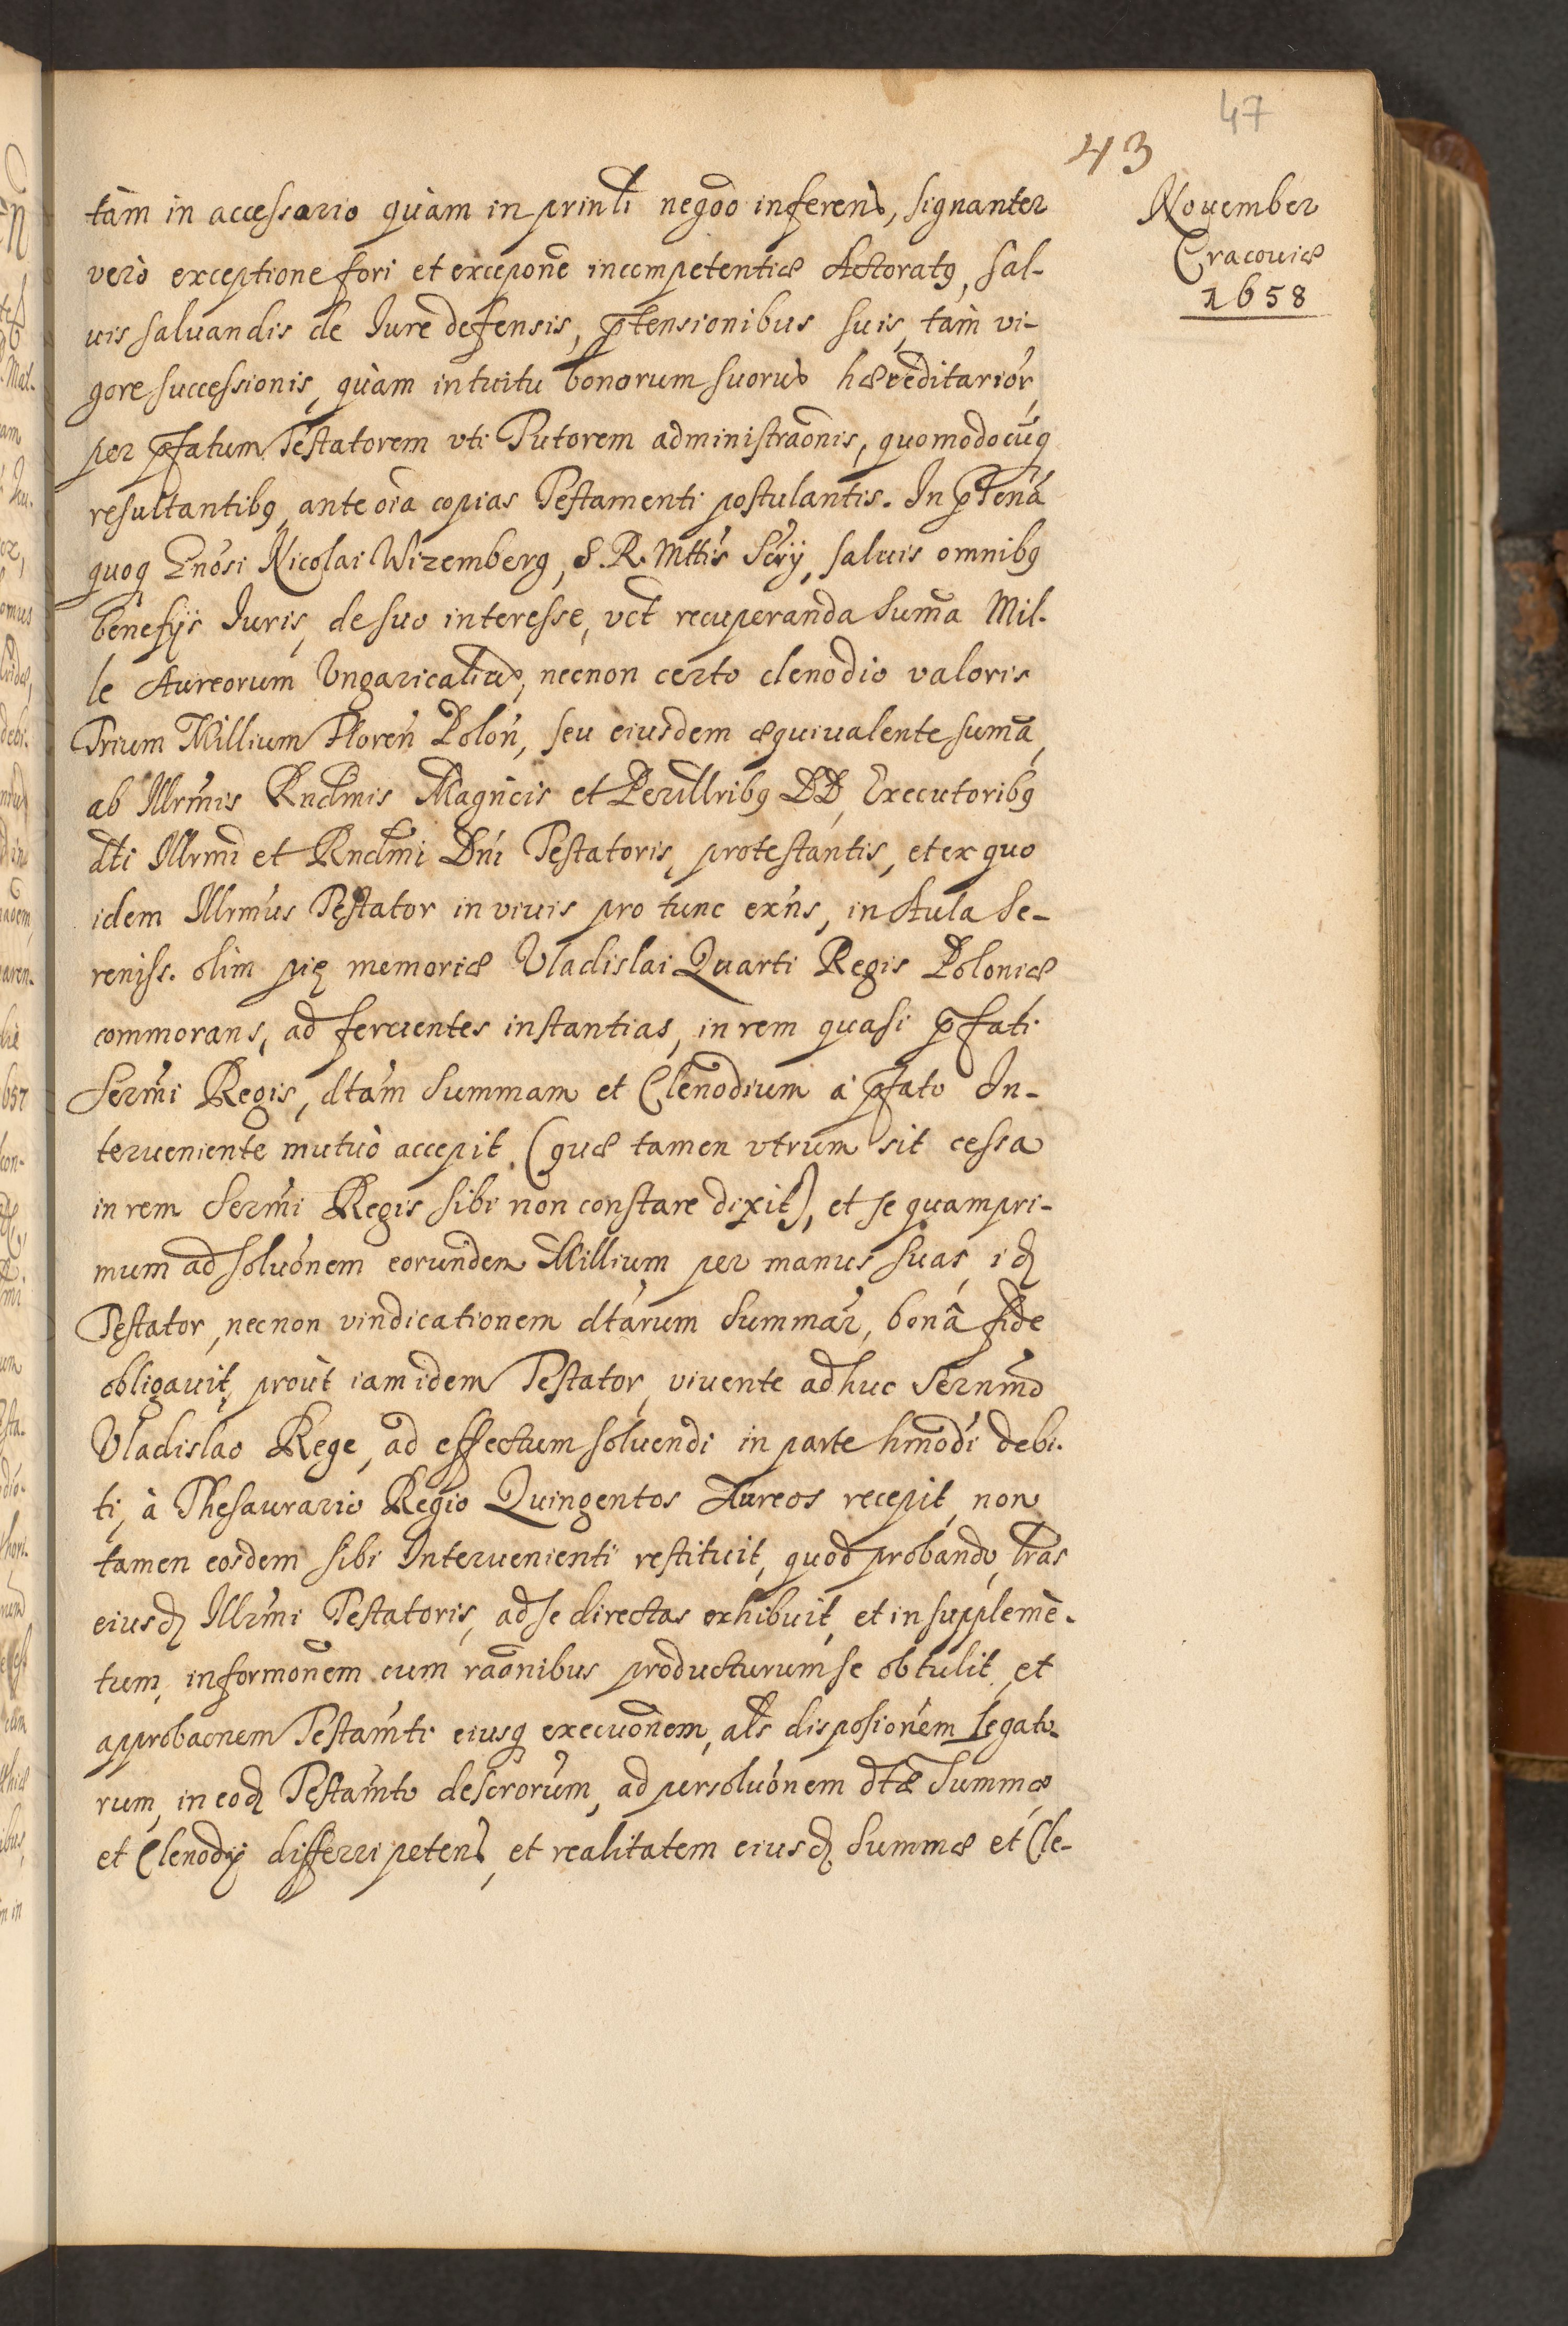 47
43
November
Cracouiæ
1658
tàm in accessario quàm in prinlī negōō inferens, signanter
verò exceptione fori et excepōne incompetentiæ Actoratq, sal-
uis saluandis de Iure defensis, p̄tensionibus suis, tàm vi-
gore successionis, quàm intuitu bonorum suorum hæreditarior,
per p̄fatum Testatorem vti Tutorem administraōnis, quomodocūq
resultantibq, ante oīa copias Testamenti postulantis. In p̄tēnā
quoq Gnōsi Nicolai Wizemberg, S. R. Mttis Scrij, saluis omnibq
benefijs Iuris, de suo interesse, vct recuperanda Suma Mil-
le Aureorum Vngaricalium, necnon certo clenodio valoris
Trium Millium Floreń Poloń, seu eiusdem æquivalente sumā,
ab Illrmis Rndmis Magńcis et Perillribq DD, Executoribq
dti Illrmi et Rndmi Dni Testatoris, protestantis, et ex quo
idem Illrmus Testator in viuis pro tunc exńs, in Aula Se-
reniss. olim pię memoriæ Vladislai Quarti Regis Poloniæ
commorans, ad feruentes instantias, in rem quasi p̄fati
Sermi Regis, dtam Summam et Clenodium à p̄fato In-
terueniente mutuò accepit. (quæ tamen vtrum sit cessa
in rem Sermi Regis sibi non constare dixit), et se quampri-
mum ad soluōnem eorundem Millium per manus suas, id
Testator, necnon vindicationem dtarum Summar, bonâ fide
obligauit, proùt iam idem Testator, viuente adhuc Sernmo
Vladislao Rege, ad effectum soluendi in parte hmōdi debi-
ti, à Thesaurario Regio Quingentos Aureos recepit, non
tamen eosdem sibi Interuenienti restituit, quod probando, lras
eiusd Illrmi Testatoris, ad se directas exhibuit, et in supplemē-
tum, informōnem cum raōnibus producturum se obtulit, et
approbaōnem Testamti eiusq execuōnem, als disposiōnem legato-
rum, in eod Testamto descrorum, ad persoluōnem dtæ Summæ
et Clenodij differri petens, et realitatem eiusd Summæ et Cle-